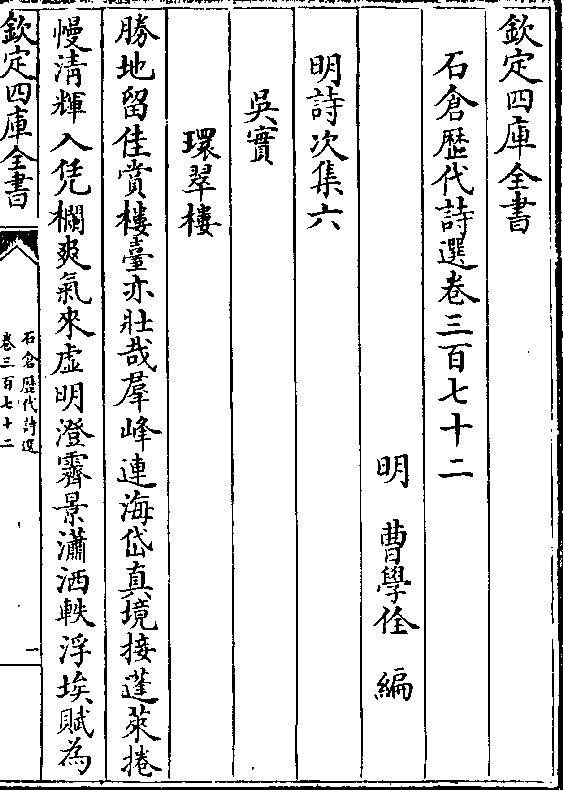 欽定四庫全書
石倉歷代詩選卷三百七十二
明 曹學佺 編
明詩次集六
吳實
環翠樓
勝地留佳賞樓臺亦壯哉羣峰連海岱真境接蓬萊捲
幔清輝入凭欄爽氣來虛明澄霽景瀟洒軼浮埃賦為
欽定四庫全書
石倉歷代詩選
卷三百七十二
一